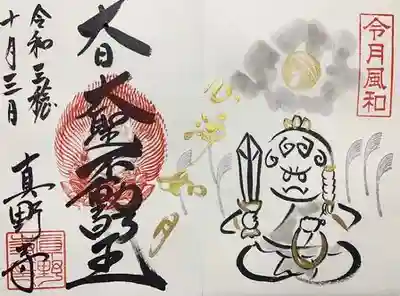 令月風和
大日大聖不動明王
令和三穐
十月三日
真野寺